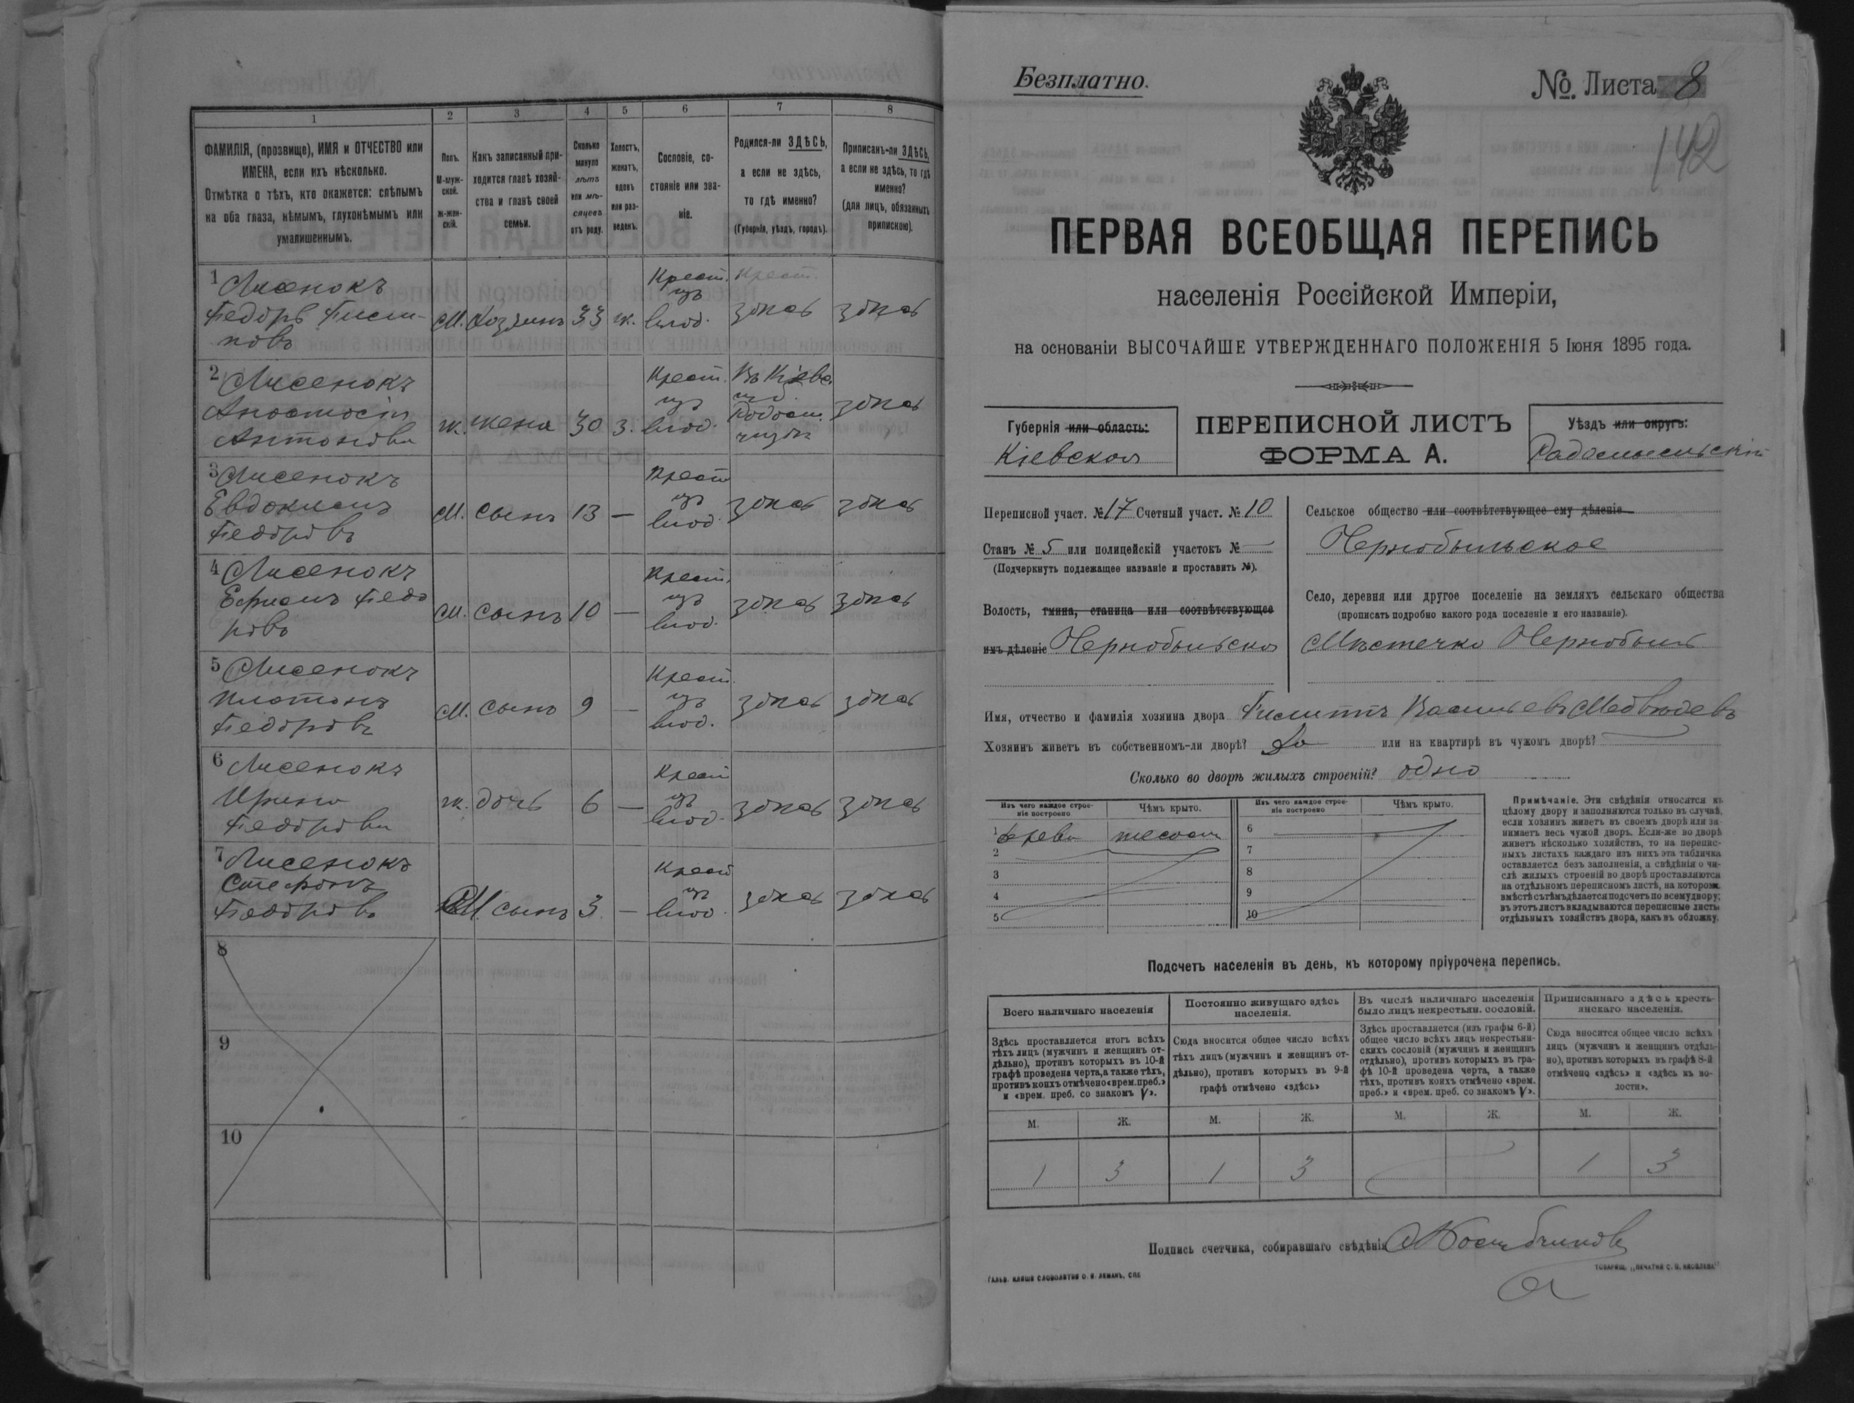 1
2
3
4
5
6
7
8
ФАМИЛІЯ, (прозвище), ИМЯ и ОТЧЕСТВО или
ИМЕНА, если ихъ нѣсколько.
Отмѣтка о тѣхъ, кто окажется: слѣпымъ
на оба глаза, нѣмымъ, глухонѣмымъ или
умалишеннымъ.
Полъ.
М-муж-
ской.
Ж-жен-
скій.
Какъ записанный при-
ходится главѣ хозяй-
ства и главѣ своей
семьи.
Сколько
минуло
лѣтъ
или мѣ-
сяцевъ
отъ роду.
Холостъ,
женатъ,
вдовъ
или раз-
веденъ.
Сословіе, со-
стояніе или зва-
ніе.
Родился-ли ЗДѢСЬ,
а если не здѣсь,
то гдѣ именно?
(Губернія, уѣздъ, городъ).
Приписанъ-ли ЗДѢСЬ,
а если не здѣсь, то гдѣ
именно?
(для лицъ, обязанныхъ
припискою).
1 Лисенокъ
Федоръ
М. Хозяинъ 33 ж. Крест. изъ влад. здесь здесь
2 Лисенокъ
Анастасія
Антонова
ж. жена 30 з. Крест. изъ влад. здесь
3 Лисенокъ
Евдокимъ
Федоровъ
М. сынъ 13 — Крест. изъ влад. здесь здесь
4 Лисенокъ
Ефимъ Федо
ровъ
М. сынъ 10 — Крест. изъ влад. здесь здесь
5 Лисенокъ
Платонъ
Федоровъ
М. сынъ 9 — Крест. изъ влад. здесь здесь
6 Лисенокъ
Ирина
Федорова
ж. дочь 6 — Крест. изъ влад. здесь здесь
7 Лисенокъ
Стефанъ
Федоровъ
М. сынъ 3 — Крест. изъ влад. здесь здесь
8
9
10
Безплатно.
№ Листа 8
142
ПЕРВАЯ ВСЕОБЩАЯ ПЕРЕПИСЬ
населенія Россійской Имперіи,
на основаніи ВЫСОЧАЙШЕ УТВЕРЖДЕННАГО ПОЛОЖЕНІЯ 5 Іюня 1895 года.
Губернія или область:
Кіевская
ПЕРЕПИСНОЙ ЛИСТЪ
ФОРМА А.
Уѣздъ или округъ:
Радомысльскій
Переписной участ. № 17 Счетный участ. № 10
Станъ № 5 или полицейскій участокъ № —
(Подчеркнуть подлежащее названіе и проставить №).
Волость, гмина, станица или соотвѣтствующее
имъ дѣленіе Чернобыльская
Сельское общество или соотвѣтствующее ему дѣленіе
Чернобыльское
Село, деревня или другое поселеніе на земляхъ сельскаго общества
(прописать подробно какого рода поселеніе и его названіе).
Мѣстечко Чернобыль
Имя, отчество и фамилія хозяина двора Филиппъ Васильевъ Медвѣдевъ
Хозяинъ живетъ въ собственномъ-ли дворѣ? Да или на квартирѣ въ чужомъ дворѣ? —
Сколько во дворѣ жилыхъ строеній? одно
Изъ чего каждое строе-
ніе построено
Чѣмъ крыто.
Изъ чего каждое строе-
ніе построено
Чѣмъ крыто.
1 дерева тесомъ
2
3
4
5
6
7
8
9
10
Примѣчаніе. Эти свѣдѣнія относятся къ
цѣлому двору и заполняются только въ случаѣ,
если хозяинъ живетъ въ своемъ дворѣ или за-
нимаетъ весь чужой дворъ. Если-же во дворѣ
живетъ нѣсколько хозяйствъ, то на перепис-
ныхъ листахъ каждаго изъ нихъ эта табличка
оставляется безъ заполненія, а свѣдѣнія о чи-
слѣ жилыхъ строеній во дворѣ проставляются
на отдѣльномъ переписномъ листѣ, на которомъ
вмѣстѣ съ тѣмъ дѣлается подсчетъ по всему двору;
въ этотъ листъ вкладываются переписные листы
отдѣльныхъ хозяйствъ двора, какъ въ обложку.
Подсчетъ населенія въ день, къ которому пріурочена перепись.
Всего наличнаго населенія
Постоянно живущаго здѣсь
населенія.
Въ числѣ наличнаго населенія
было лицъ некрестьян. сословій.
Приписаннаго здѣсь кресть-
янскаго населенія.
Здѣсь проставляется итогъ всѣхъ
тѣхъ лицъ (мужчинъ и женщинъ от-
дѣльно), противъ которыхъ въ 10-й
графѣ проведена черта, а также тѣхъ,
противъ коихъ отмѣчено «врем. преб.»
и «врем. преб. со знакомъ V».
Сюда вносится общее число всѣхъ
тѣхъ лицъ (мужчинъ и женщинъ от-
дѣльно), противъ которыхъ въ 9-й
графѣ отмѣчено «здѣсь»
Здѣсь проставляется (изъ графы 6-й)
общее число всѣхъ лицъ некрестьян-
скихъ сословій (мужчинъ и женщинъ
отдѣльно), противъ которыхъ въ гра-
фѣ 10-й проведена черта, а также
тѣхъ, противъ коихъ отмѣчено «врем.
преб.» и «врем. преб. со знакомъ V».
Сюда вносится общее число всѣхъ
лицъ (мужчинъ и женщинъ отдѣль-
но), противъ которыхъ въ графѣ 8-й
отмѣчено «здѣсь» и «здѣсь въ во-
лости».
М. Ж. М. Ж. М. Ж. М. Ж.
1 3 1 3 1 3
Подпись счетчика, собиравшаго свѣдѣнія
ГАЛЬВ. КЛИШЕ СЛОВОЛИТНИ О. И. ЛЕМАНЪ, СПБ
ТОВАРИЩ. „ПЕЧАТНЯ С. П. ЯКОВЛЕВА"